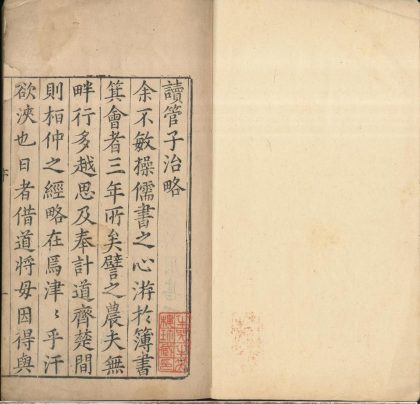 讀管子治略
余不敏操儒書之心游於簿書
箕會者三年所矣譬之農夫無
畔行多越思及奉計道齊楚間
則栢仲之經略在焉津〻乎汗
欲浹也日者借道將毋因得與